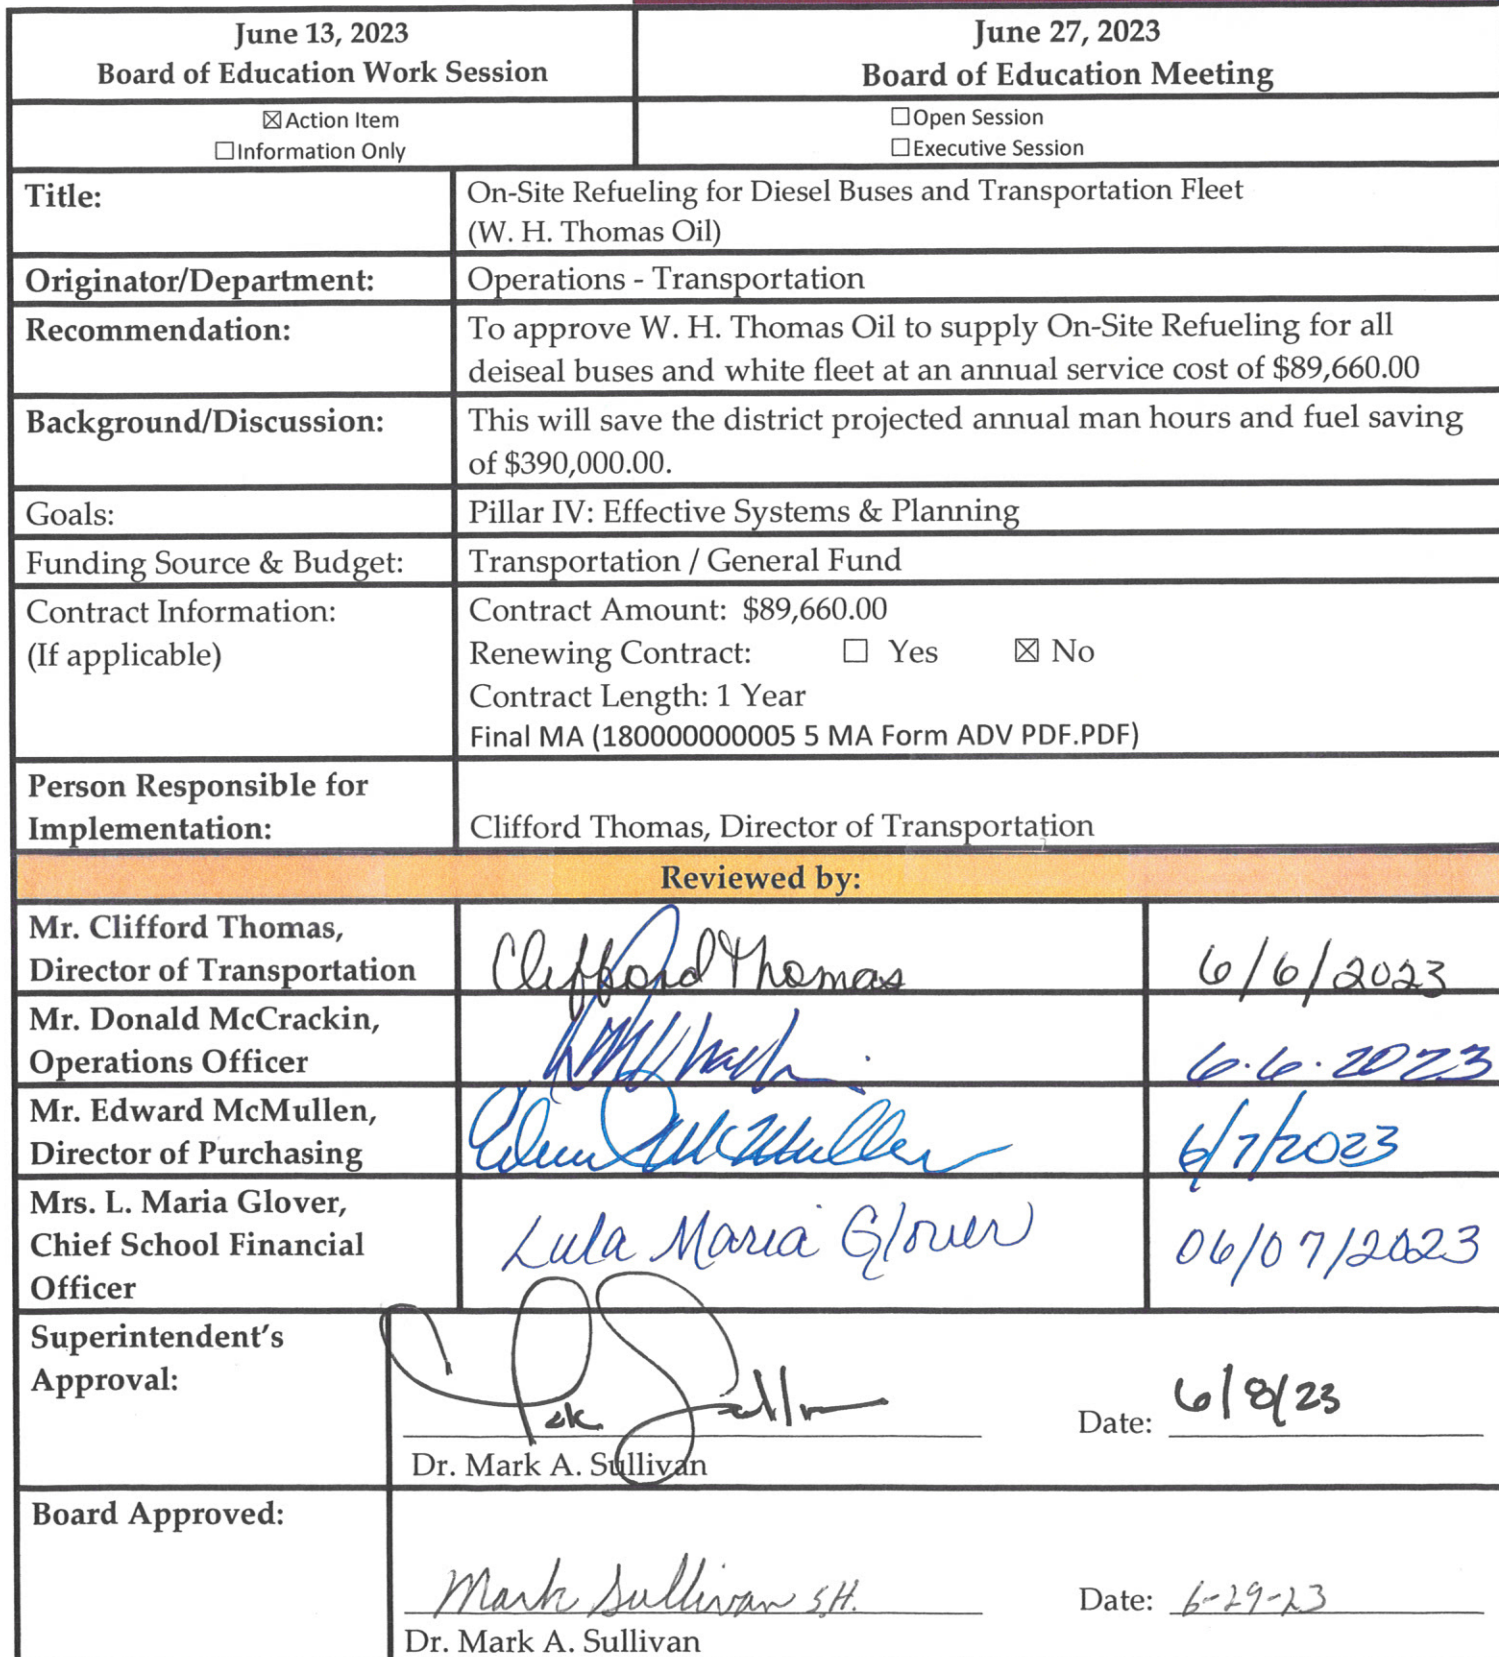 June 13, 2023
Board of Education Work Session
June 27, 2023
Board of Education Meeting
☒Action Item
☐Information Only
☐Open Session
☐Executive Session
Title:
On-Site Refueling for Diesel Buses and Transportation Fleet
(W. H. Thomas Oil)
Originator/Department:
Operations - Transportation
Recommendation:
To approve W. H. Thomas Oil to supply On-Site Refueling for all
deiseal buses and white fleet at an annual service cost of $89,660.00
Background/Discussion:
This will save the district projected annual man hours and fuel saving
of $390,000.00.
Goals:
Pillar IV: Effective Systems & Planning
Funding Source & Budget:
Transportation / General Fund
Contract Information:
(If applicable)
Contract Amount: $89,660.00
Renewing Contract: ☐ Yes ☒ No
Contract Length: 1 Year
Final MA (180000000005 5 MA Form ADV PDF.PDF)
Person Responsible for
Implementation:
Clifford Thomas, Director of Transportation
Reviewed by:
Mr. Clifford Thomas,
Director of Transportation
Clifford Thomas
6/6/2023
Mr. Donald McCrackin,
Operations Officer
6.6.2023
Mr. Edward McMullen,
Director of Purchasing
McMullen
6/7/2023
Mrs. L. Maria Glover,
Chief School Financial
Officer
Lula Maria Glover
06/07/2023
Superintendent's
Approval:
Date: 6/8/23
Dr. Mark A. Sullivan
Board Approved:
Mark Sullivan S.H.
Date: 6-29-23
Dr. Mark A. Sullivan